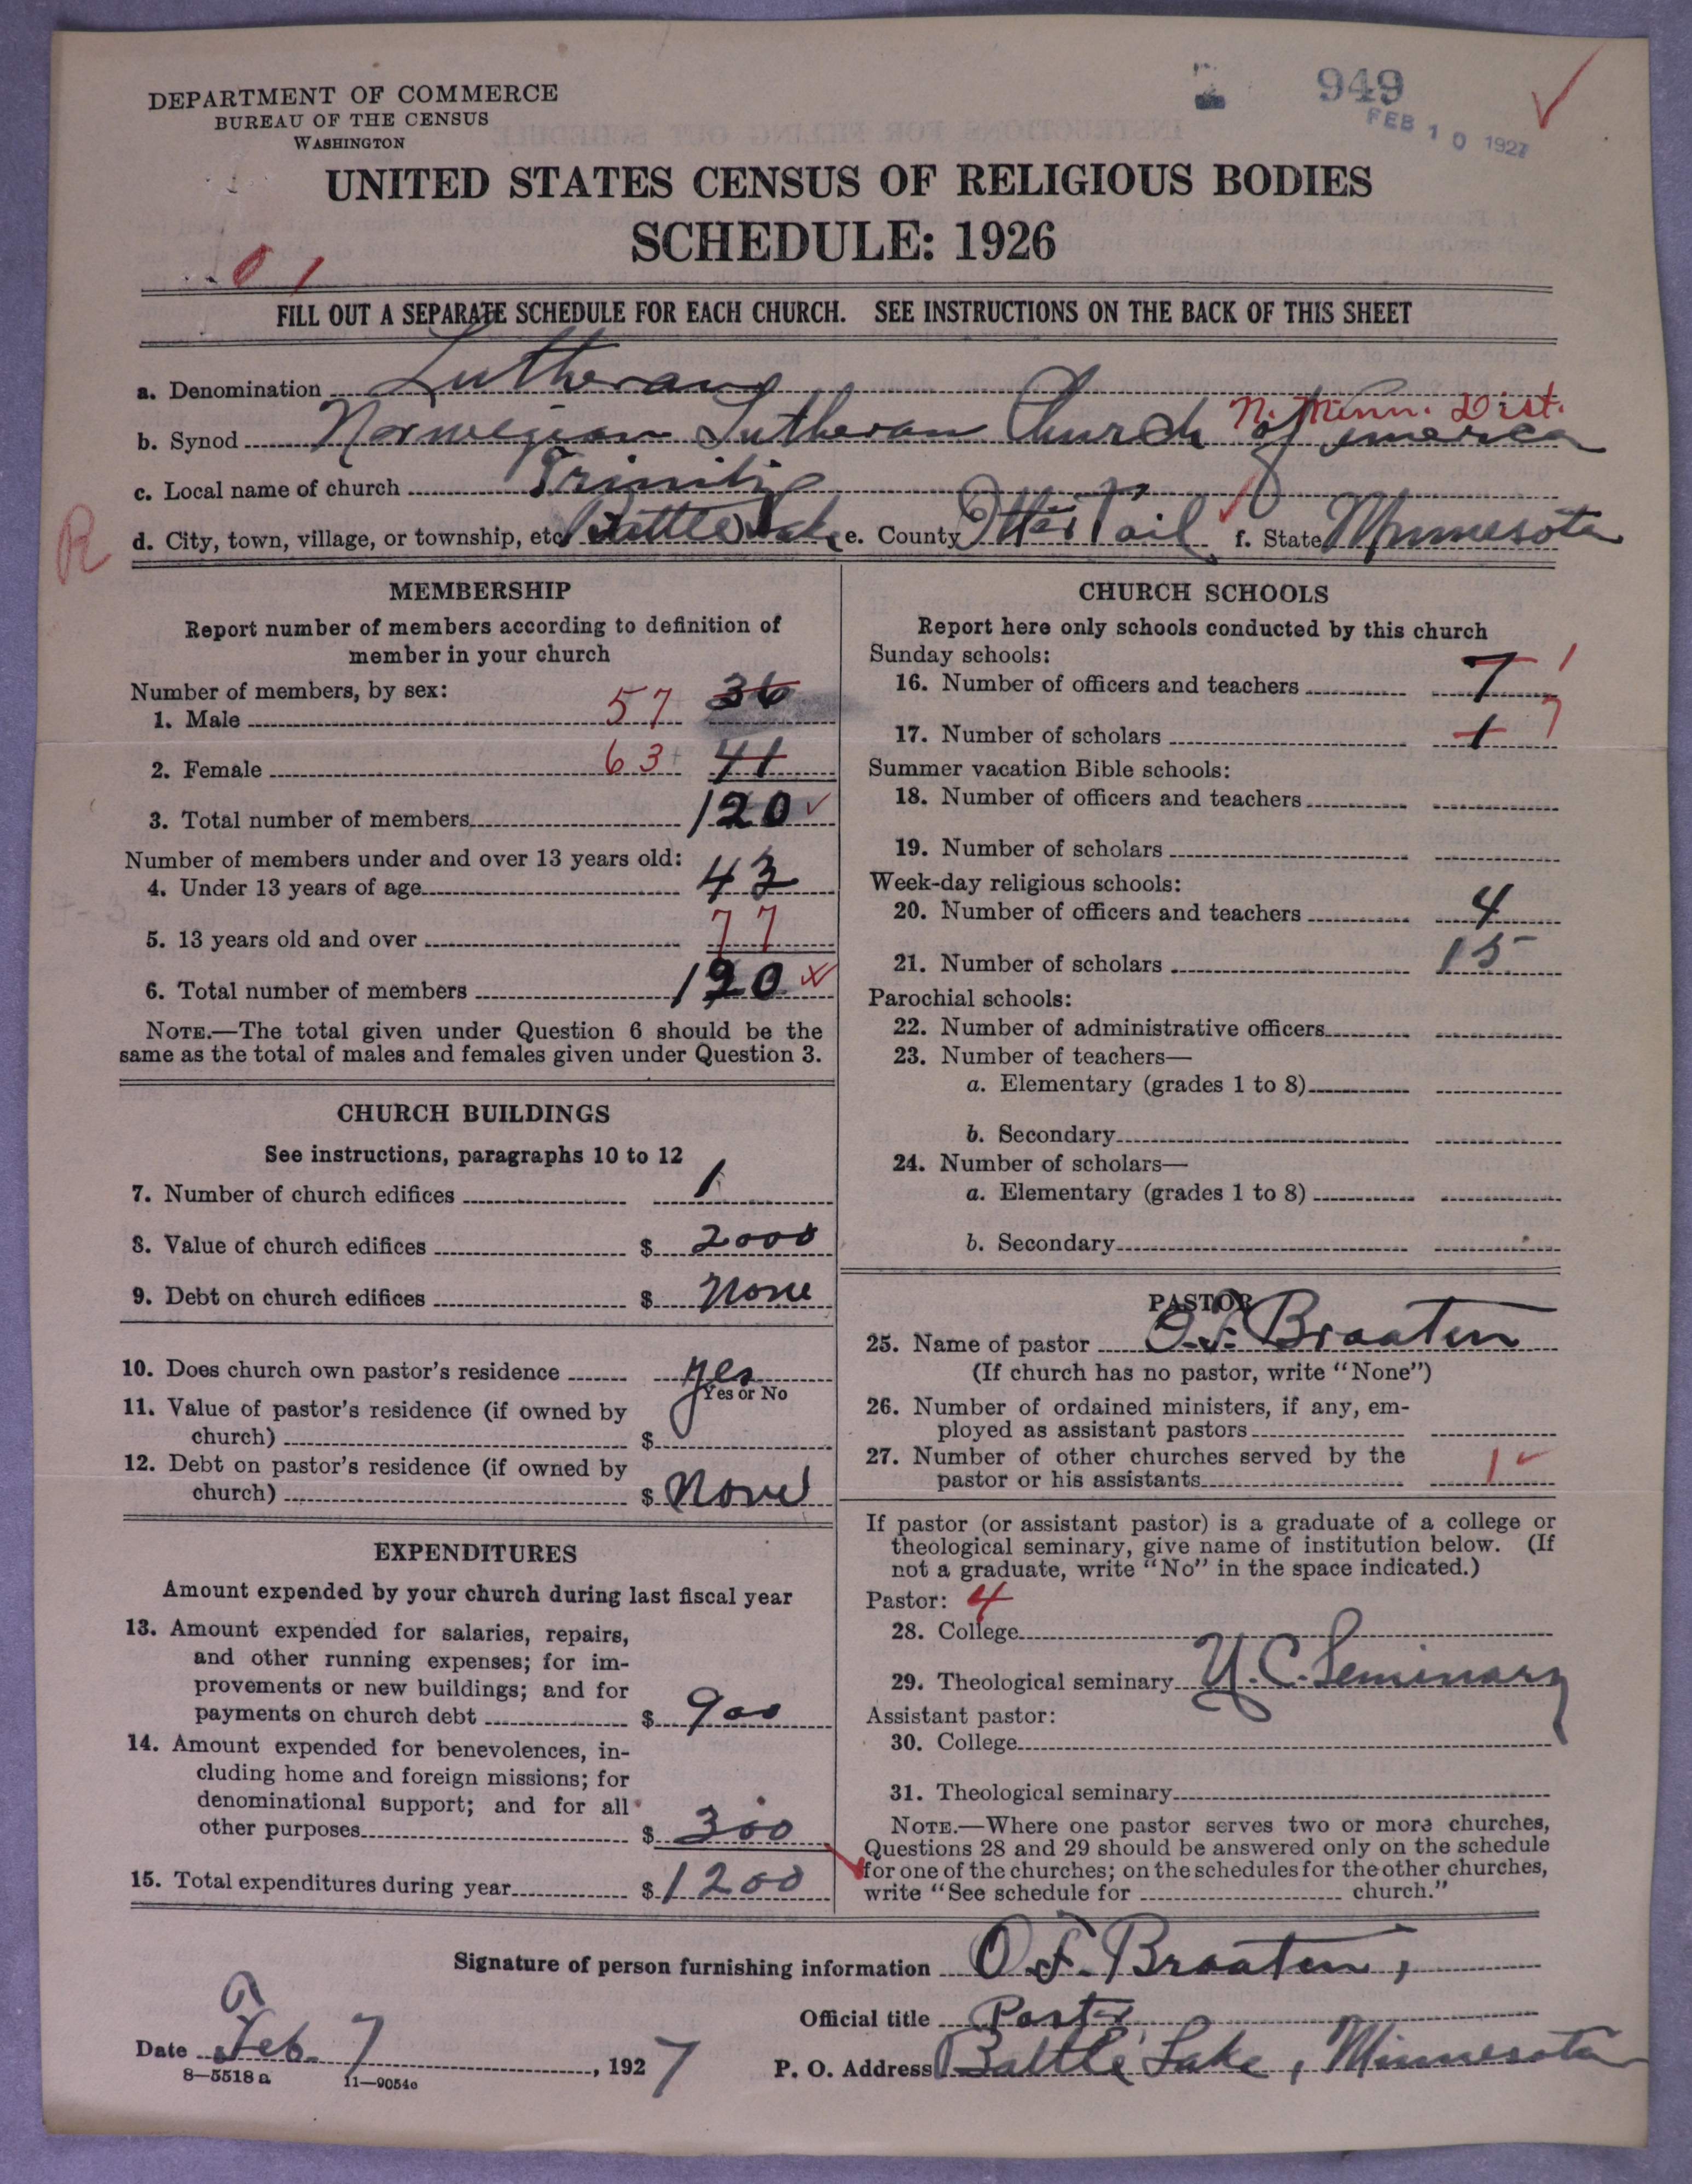 DEPARTMENT OF COMMERCE
BUREAU OF THE CENSUS
WASHINGTON
949
FEB 10 1927
UNITED STATES CENSUS OF RELIGIOUS BODIES
SCHEDULE: 1926
0 1
FILL OUT A SEPARATE SCHEDULE FOR EACH CHURCH. SEE INSTRUCTIONS ON THE BACK OF THIS SHEET
a. Denomination Lutheran
N. Minn. Dist.
b. Synod Norwegian Lutheran Church of America
c. Local name of church Trinity
R
d. City, town, village, or township, etc. Battle Lake e. County Otter Tail f. State Minnesota
MEMBERSHIP
Report number of members according to definition of
member in your church
Number of members, by sex:
1. Male 57 36
2. Female 63 41
3. Total number of members 120
Number of members under and over 13 years old:
4. Under 13 years of age 43
5. 13 years old and over 77
6. Total number of members 120
NOTE.—The total given under Question 6 should be the
same as the total of males and females given under Question 3.
CHURCH BUILDINGS
See instructions, paragraphs 10 to 12
7. Number of church edifices 1
8. Value of church edifices $ 2000
9. Debt on church edifices $ None
10. Does church own pastor's residence yes
Yes or No
11. Value of pastor's residence (if owned by
church) $
12. Debt on pastor's residence (if owned by
church) $ None
EXPENDITURES
Amount expended by your church during last fiscal year
13. Amount expended for salaries, repairs,
and other running expenses; for im-
provements or new buildings; and for
payments on church debt $ 900
14. Amount expended for benevolences, in-
cluding home and foreign missions; for
denominational support; and for all
other purposes $ 300
15. Total expenditures during year $ 1200
CHURCH SCHOOLS
Report here only schools conducted by this church
Sunday schools:
16. Number of officers and teachers 7 1
17. Number of scholars 1 7
Summer vacation Bible schools:
18. Number of officers and teachers
19. Number of scholars
Week-day religious schools:
20. Number of officers and teachers 4
21. Number of scholars 15
Parochial schools:
22. Number of administrative officers
23. Number of teachers—
a. Elementary (grades 1 to 8)
b. Secondary
24. Number of scholars—
a. Elementary (grades 1 to 8)
b. Secondary
PASTOR
25. Name of pastor O. F. Braaten
(If church has no pastor, write "None")
26. Number of ordained ministers, if any, em-
ployed as assistant pastors
27. Number of other churches served by the
pastor or his assistants 1
If pastor (or assistant pastor) is a graduate of a college or
theological seminary, give name of institution below. (If
not a graduate, write "No" in the space indicated.)
Pastor: 4
28. College
29. Theological seminary U. C. Seminary
Assistant pastor:
30. College
31. Theological seminary
NOTE.—Where one pastor serves two or more churches,
Questions 28 and 29 should be answered only on the schedule
for one of the churches; on the schedules for the other churches,
write "See schedule for church."
Signature of person furnishing information O. F. Braaten,
Official title Pastor
Date Feb. 7, 1927 P. O. Address Battle Lake, Minnesota
8—5518 a 11—9054o